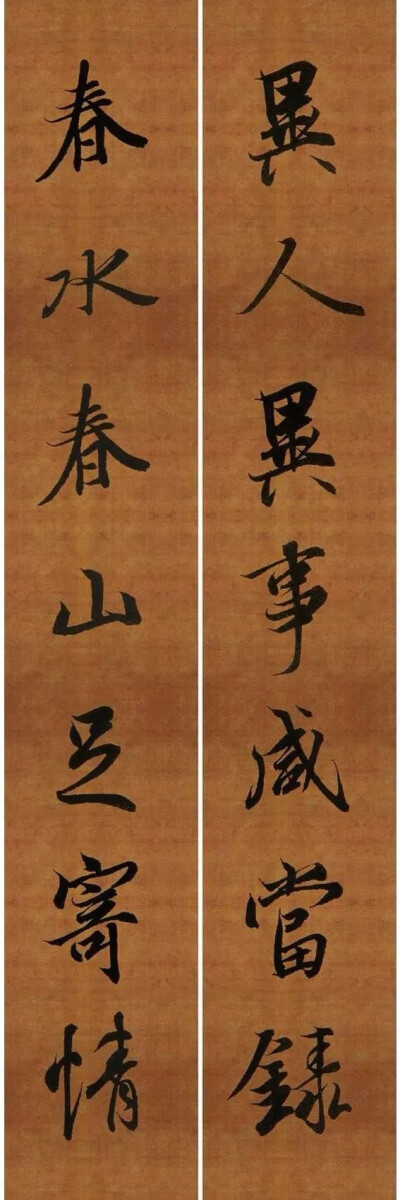 異人異事咸當錄
春水春山足寄情